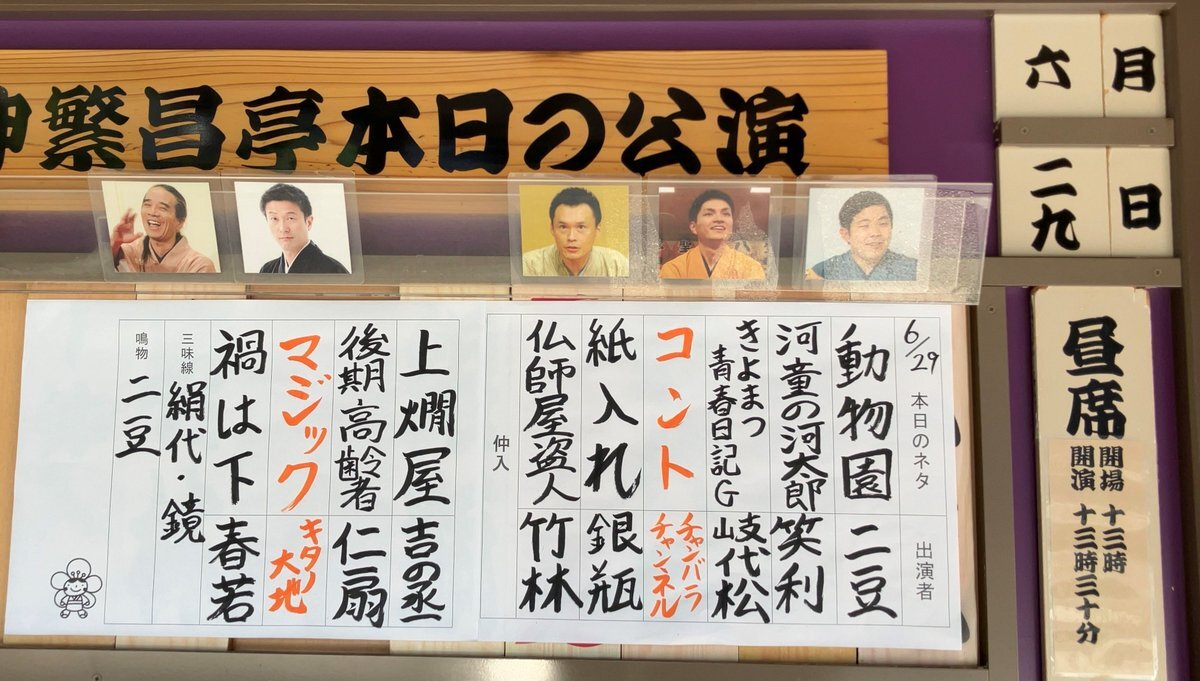 神繁昌亭本日の公演
六月
二九日
昼席
開場 十三時
開演 十三時三十分
6/29 本日のネタ 出演者
動物園 二豆
河童の河太郎 笑利
きよまつ青春日記G 山支代松
コント チャンバラチャンネル
紙入れ 銀瓶
仏師屋盗人 竹林
仲入
上燗屋 吉の丞
後期高齢者 仁扇
マジック キタノ大地
禍は下 春若
三味線 絹代・鏡
鳴物 二豆